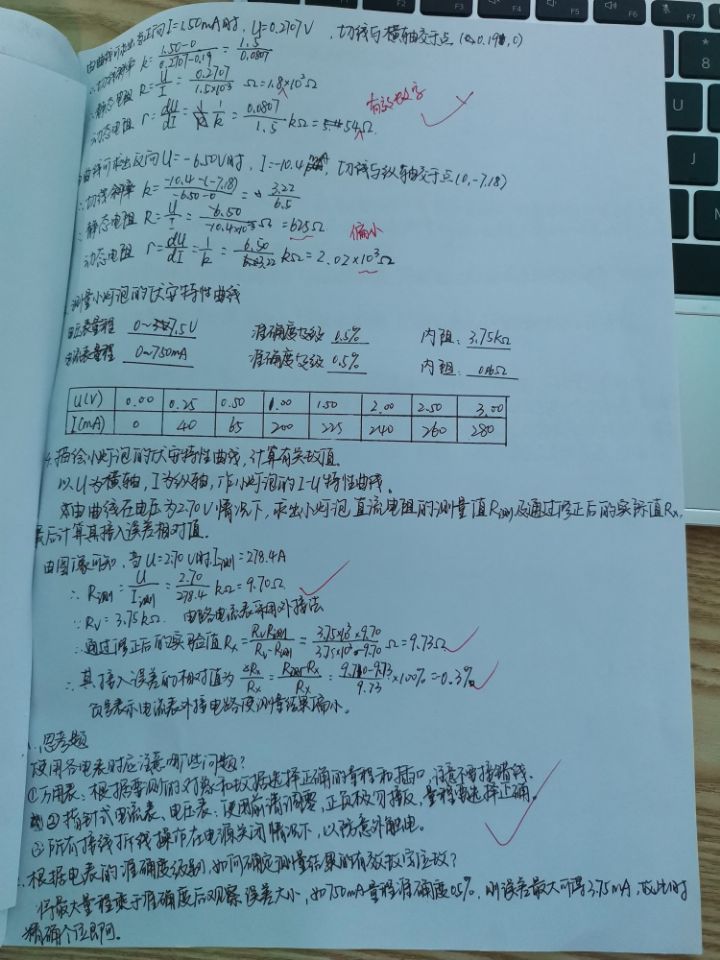 由曲线可求出当正向I=1.50mA时，U=0.2707V，切线与横轴交于点(0.19,0)
∴切线斜率 k=(1.50-0)/(0.2707-0.19)=1.5/0.0807
∴静态电阻 R=U/I=0.2707/(1.5×10⁻³) Ω=1.8×10²Ω
动态电阻 r=dU/dI=1/k=0.0807/1.5 kΩ=54Ω.
有效数字
曲线可求出反向U=-6.50V时，I=-10.4，切线与纵轴交于点(0,-7.18)
∴切线斜率 k=(-10.4-(-7.18))/(-6.50-0)=3.22/6.5
∴静态电阻 R=U/I=-6.50/(-10.4×10⁻³) Ω=625Ω
偏小
动态电阻 r=dU/dI=1/k=6.50/3.22 kΩ=2.02×10³Ω
测量小灯泡的伏安特性曲线
电压表量程 0~7.5V 准确度等级 0.5% 内阻: 3.75kΩ
电流表量程 0~750mA 准确度等级 0.5% 内阻:
U(V) 0.00 0.25 0.50 1.00 1.50 2.00 2.50 3.00
I(mA) 0 40 65 200 225 240 260 280
4.描绘小灯泡的伏安特性曲线，计算有关数值.
以U为横轴，I为纵轴，作小灯泡的I-U特性曲线.
由曲线在电压为2.70V情况下，求出小灯泡直流电阻的测量值R测及通过修正后的实际值Rx,
最后计算其接入误差相对值.
由图像可知，当U=2.70V时I测=278.4A
∴R测=U/I测=2.70/278.4 kΩ=9.70Ω
∵Rv=3.75kΩ. 电路电流表采用外接法
∴通过修正后的实验值Rx=RvR测/(Rv-R测)=3.75×10³×9.70/(3.75×10³-9.70) Ω=9.73Ω
∴其接入误差的相对值为 ΔRx/Rx=(R测-Rx)/Rx=(9.70-9.73)/9.73×100%=-0.3%
负号表示电流表外接电路使测量结果偏小。
思考题
使用各电表时应注意哪些问题?
①万用表：根据要测的对象和数据选择正确的量程和插口，注意不要接错线.
②指针式电流表、电压表：使用前请调零，正负极勿接反，量程需选择正确.
③所有接线拆线操作在电源关闭情况下，以防意外触电。
根据电表的准确度级别，如何确定测量结果的有效数字位数?
将最大量程乘于准确度后观察误差大小，如750mA量程准确度0.5%，则误差最大可得3.75mA，故此时
精确个位即可。